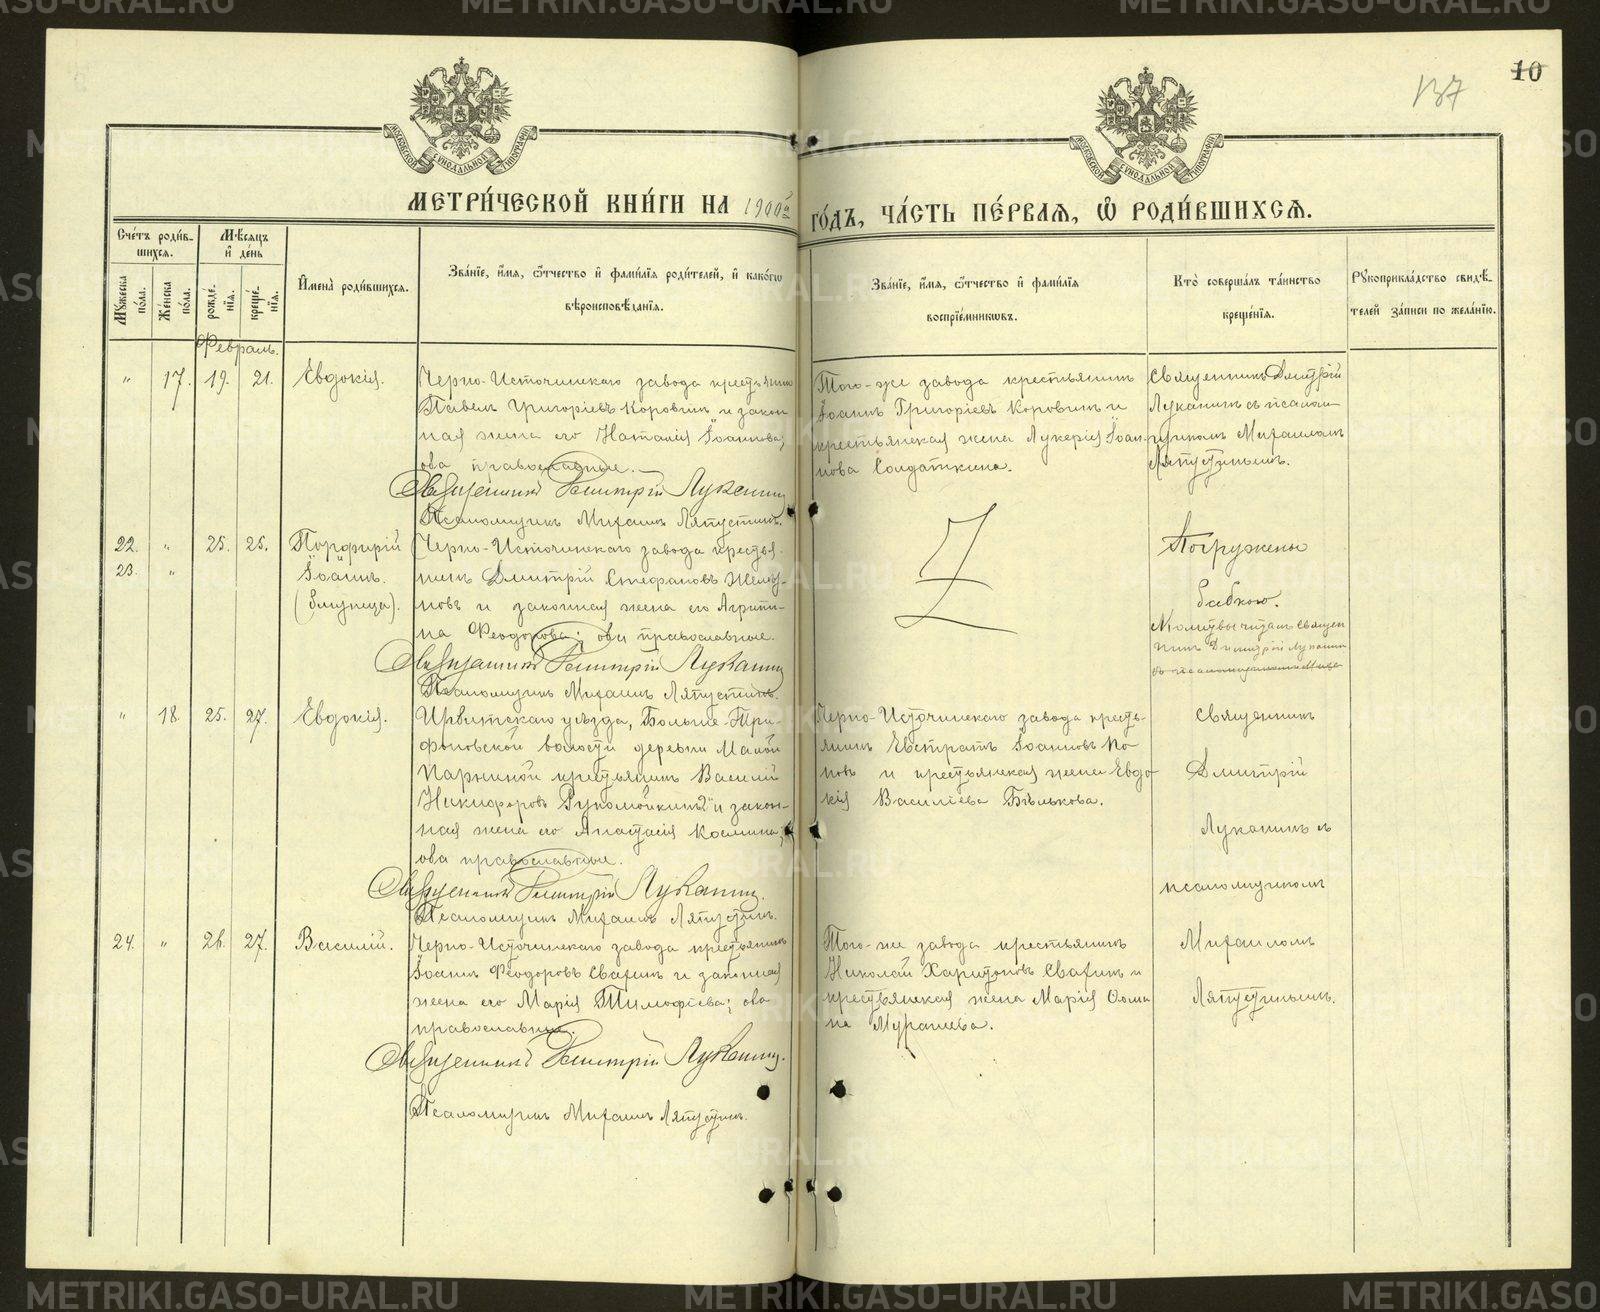 METRIKI.GASO-URAL.RU
10
137
МОСКОВСКОЙ СѴНОДАЛЬНОЙ ТИПОГРАФІИ
МОСКОВСКОЙ СѴНОДАЛЬНОЙ ТИПОГРАФІИ
МЕТРИ́ЧЕСКОЙ КНИ́ГИ НА 1900й ГО́ДЪ, ЧА́СТЬ ПЕ́РВАЯ, Ѡ РОДИ́ВШИХСЯ.
Сче́тъ роди́вшихся.
Мѣ́сяцъ и де́нь
Мꙋжеска по́ла.
Же́нска по́ла.
рожде́нїя.
креще́нїя.
Имена̀ роди́вшихся.
Зва́нїе, и́мя, ѻ́тчество и фами́лїя роди́телей, и како́гѡ
вѣроисповѣ́данїя.
Зва́нїе, и́мя, ѻ́тчество и фами́лїя
воспрїе́мникѡвъ.
Кто̀ соверша́лъ та́инство
креще́нїя.
Рꙋкоприкла́дство свидѣ́-
телей за́писи по жела́нїю.
Февраль.
" 17. 19. 21. Евдокія.
Черно-Источинскаго завода крестьянинъ
Павелъ Григоріевъ Коровинъ и закон
ная жена его Наталія Іоаннова;
оба православные.
Священникъ Димитрій Луканинъ
Псаломщикъ Михаилъ Ляпустинъ.
Того-же завода крестьянинъ
Іоаннъ Григоріевъ Коровинъ и
крестьянская жена Лукерія Іоан-
нова Солдаткина.
Священникъ Дмитрій
Луканинъ съ псалом
щикомъ Михаиломъ
Ляпустинымъ.
22. " 25. 25. Порфирій
23. " Іоаннъ.
(близнеца).
Черно-Источинскаго завода крестья-
нинъ Дмитрій Стефановъ
и законная жена его Агрипи-
на Феодорова; оба православные.
Священникъ Димитрій Луканинъ
Псаломщикъ Михаилъ Ляпустинъ.
Z
Погружены
бабкою.
Молитвы читалъ священ
никъ Димитрій Луканинъ
" 18. 25. 27. Евдокія.
Ирбитскаго уѣзда, Больше-Три-
фоновской волости деревни Малой
крестьянинъ Василій
Никифоровъ Рукомойкинъ и закон-
ная жена его Анастасія Космина;
оба православные.
Священникъ Димитрій Луканинъ.
Псаломщикъ Михаилъ Ляпустинъ.
Черно-Источинскаго завода кресть-
янинъ Евстратъ Іоанновъ По-
повъ и крестьянская жена Евдо
кія Василіева Бѣлькова.
Священникъ
Дмитрій
Луканинъ съ
псаломщикомъ
Михаиломъ
Ляпустинымъ.
24. " 26. 27. Василій.
Черно-Источинскаго завода крестьянинъ
Іоаннъ Феодоровъ Свахинъ и законная
жена его Марія Тимофіева; оба
православные.
Священникъ Димитрій Луканинъ.
Псаломщикъ Михаилъ Ляпустинъ.
Того-же завода крестьянинъ
Николай Харитоновъ Свахинъ и
крестьянская жена Марія Фоми
на Мурашева.